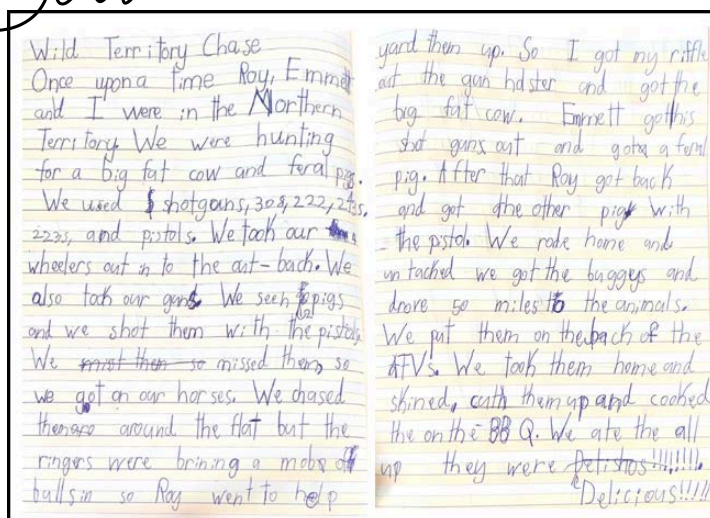 Wild Territory Chase
Once upon a time Roy, Emmett
and I were in the Northern
Territory. We were hunting
for a big fat cow and feral pigs.
We used shotguns, 308, 222, 243s,
223s, and pistols. We took our
wheelers out in to the out-back. We
also took our guns. We seen pigs
and we shot them with the pistols
We mist them so missed them, so
we got on our horses. We chased
them around the flat but the
ringers were brining a mobe of
bulls in so Roy went to help
yard them up. So I got my riffle
out the gun holster and got the
big fat cow. Emmett got his
shot guns out and got a feral
pig. After that Roy got back
and got the other pig with
the pistol. We rode home and
un tacked we got the buggys and
drove 50 miles to the animals.
We put them on the back of the
ATVs. We took them home and
skined, cuth them up and cooked
the on the BB Q. We ate the all
up they were Delishos!!!!!!!.
Delicious!!!!!